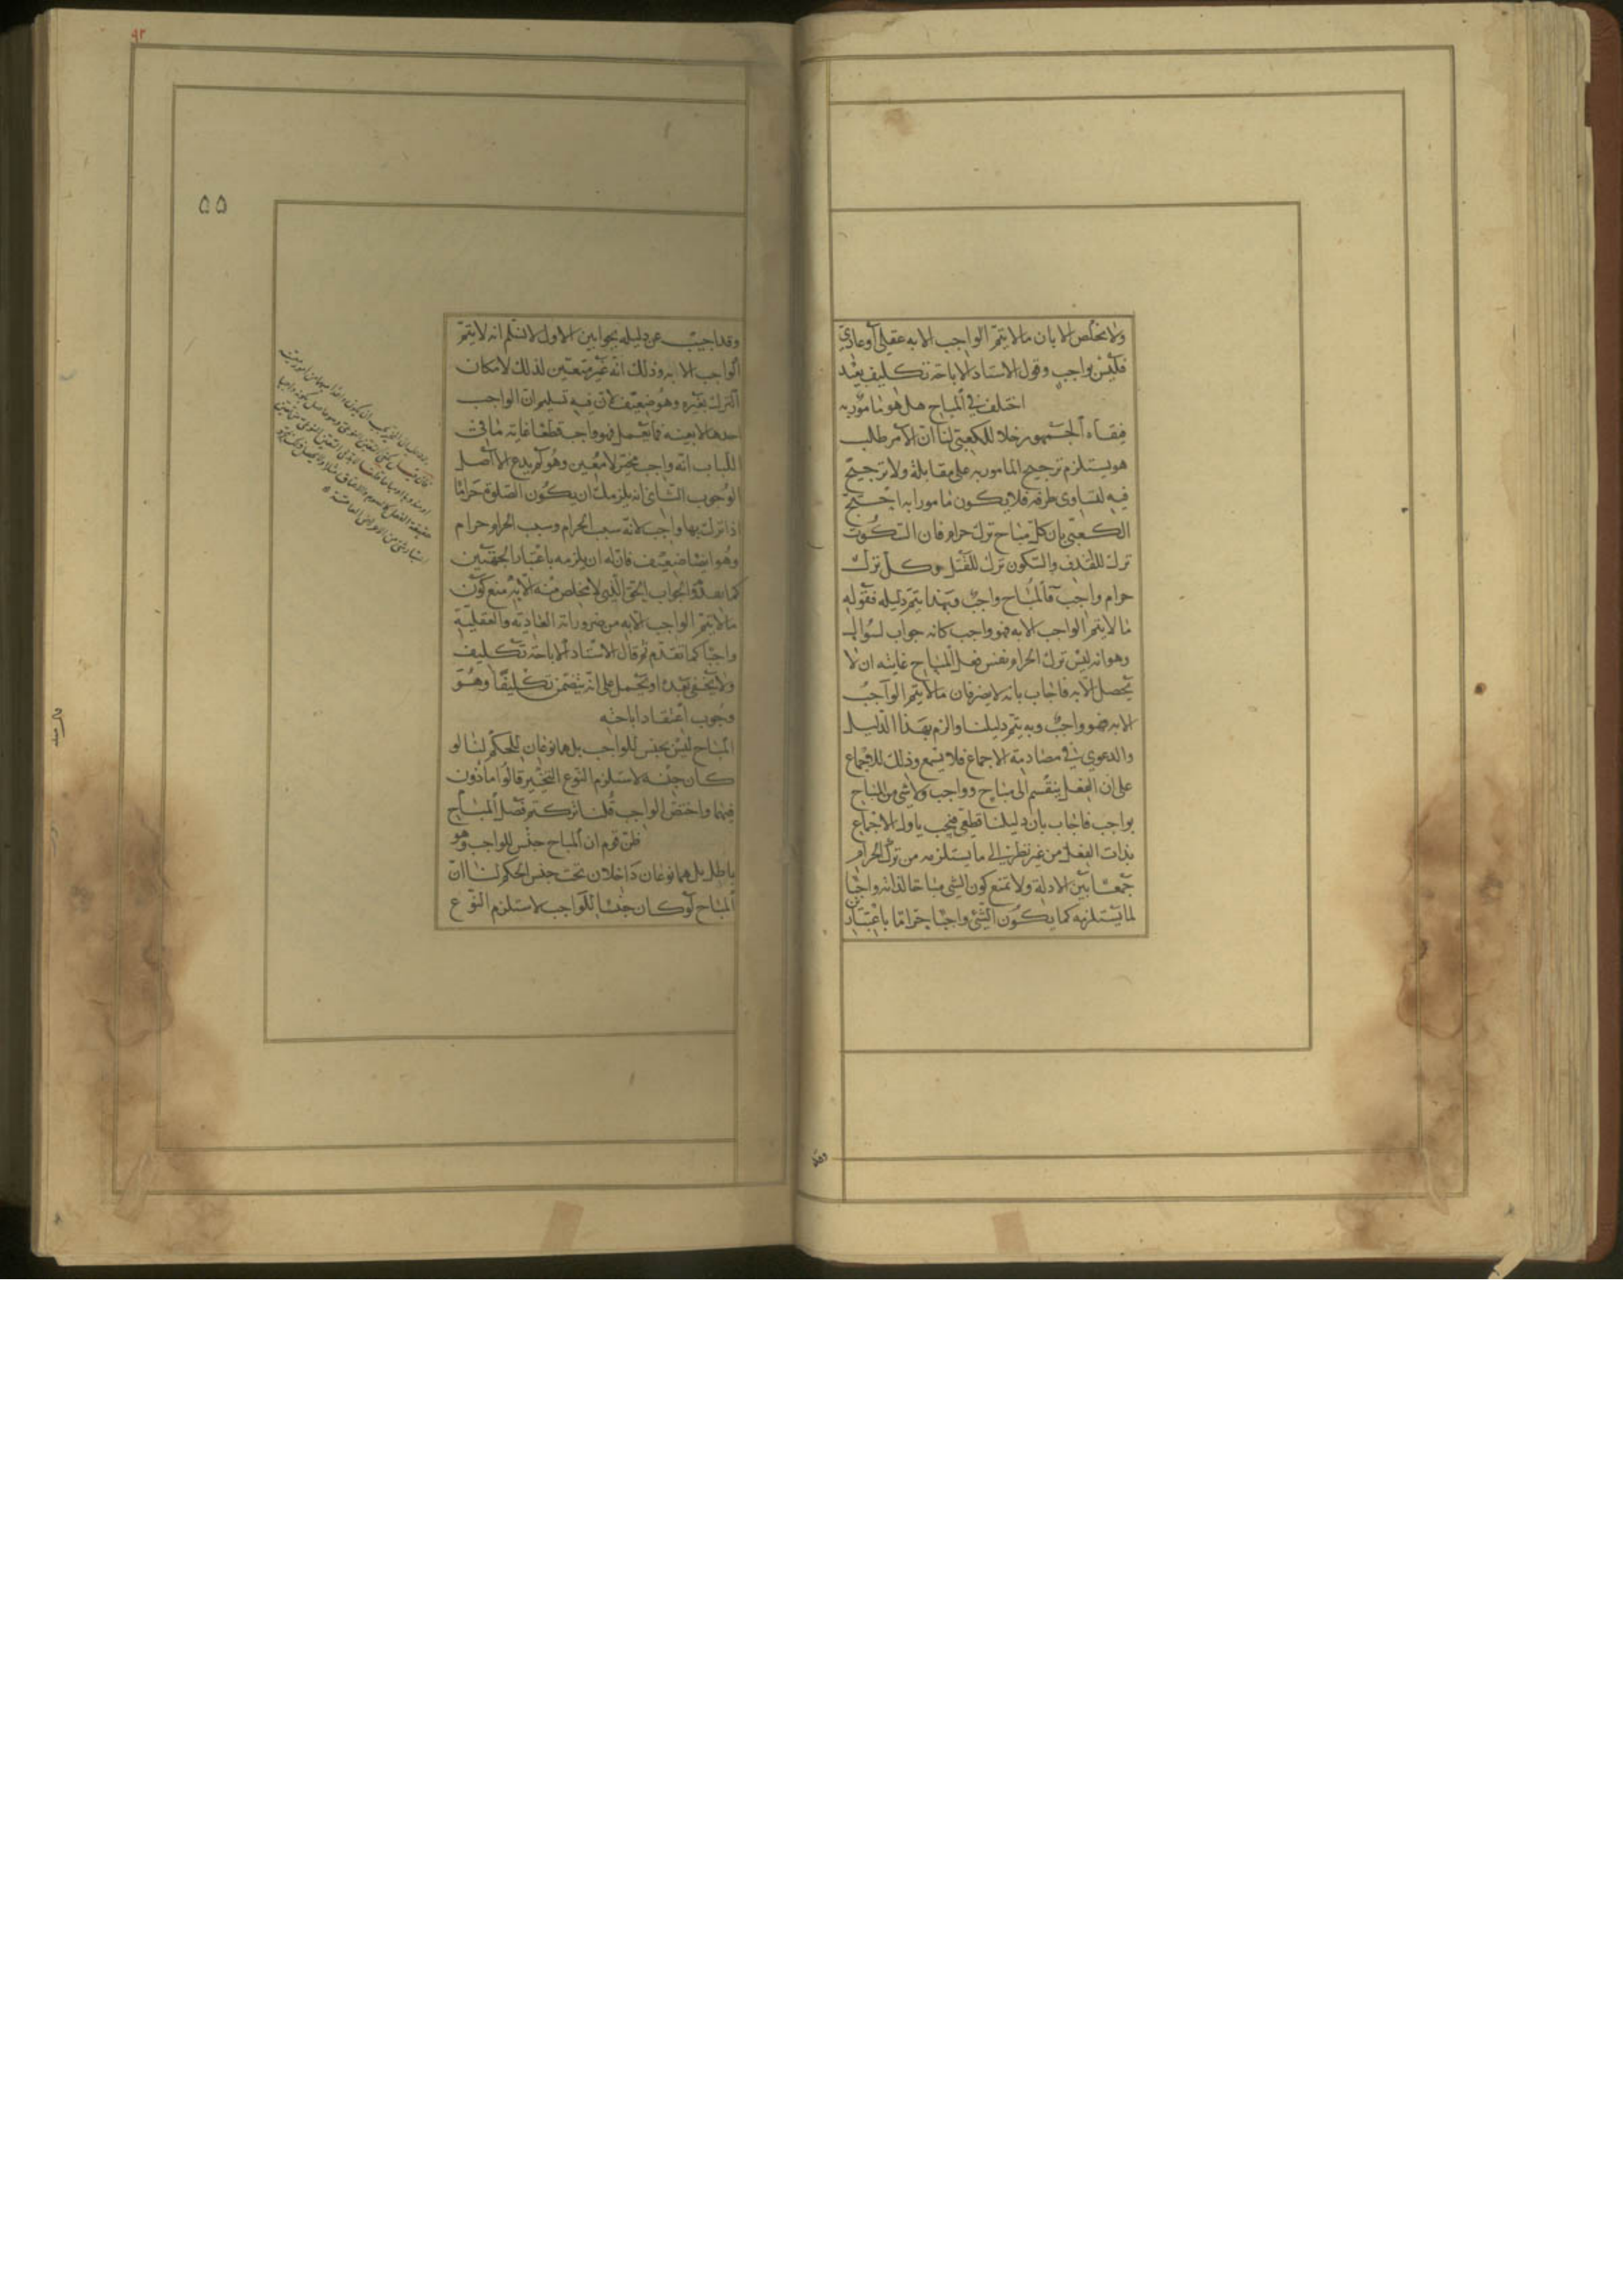 ولا مخلص الا بان ما لا يتم الواجب الا به عقلي أو عادي
فليس بواجب وقول الاستاد الاباحة تكليف بعد
اختلف في المباح هل هو مامور به
خلافا للكعبي لنا ان الامر طلب
هو يستلزم ترجيح المامور به على مقابله ولا ترجيح
فيه لتساوى طرفيه فلا يكون مامورا به احتج
الكعبي بان كل مباح ترك حرام فان السكوت
ترك للقذف والسكون ترك للقتل وكل ترك
حرام واجب فالمباح واجب وبهذا يتم دليله فقوله
ما لا يتم الواجب الا به فهو واجب كانه جواب لسوال
وهو انه ليس ترك الحرام نفس فعل المباح غايته ان لا
يحصل الا به فاجاب بانه لا يضر فان ما لا يتم الواجب
الا به فهو واجب وبه يتم دليلنا والزم بهذا الدليل
والدعوي في مصادمة الاجماع فلا يسمع وذلك للاجماع
على ان الفعل ينقسم الى مباح وواجب ولا شي من المباح
بواجب فاجاب بان دليلنا قطعي فيجب ياول الاجماع
بذات الفعل من غير نظر الى ما يستلزمه من ترك الحرام
جمعا بين الادلة ولا تمنع كون الشي مباحا لذاته واجبا
لما يستلزمه كما يكون الشئ واجبا حراما باعتبارين
وقد
٩٢
۵۵
وقد اجيب عن دليله بجوابين الاول لا نسلم انه لا يتم
الواجب الا به وذلك انه غير متعين لذلك لامكان
الترك بغيره وهو ضعيف لان فيه تسليم ان الواجب
احدها لا بعينه فما يعمل فهو واجب قطعا غايته ما في
الباب انه واجب مخير لا معين وهو لم يدع الا اصل
الوجوب الثاني انه يلزمك ان يكون الصلوة حراما
اذا ترك بها واجب لانه سبب الحرام وسبب الحرام حرام
وهو ايضا ضعيف فان له ان يلزمه باعتبار الجهتين
كما بعد والجواب الحق الذي لا مخلص منه الا به منع كون
ما لا يتم الواجب الا به من ضروراته العادية والعقلية
واجبا كما تقدم ثم قال الاستاد الاباحة تكليف
ولا يخفى بعده او يحمل على انه يتضمن تكليفا وهو
وجوب اعتقاد اباحته
المباح ليس بجنس للواجب بل هما نوعان للحكم لنا لو
كان جنسه لاستلزم النوع التخيير قالوا ماذون
فيهما واختص الواجب قلنا تركتم فصل المباح
ظن قوم ان المباح جنس للواجب وهو
باطل بل هما نوعان داخلان تحت جنس الحكم لنا ان
المباح لو كان جنسا للواجب لاستلزم النوع